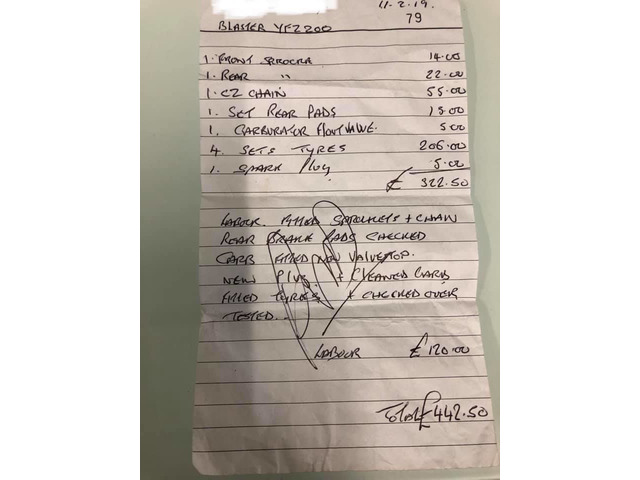 11.2.19.
79
BLASTER YFZ200
1. FRONT SPROCKET 14.00
1. REAR " 22.00
1. CZ CHAIN 55.00
1. SET REAR PADS 15.00
1. CARBURATOR FLOATVALVE. 5.00
4. SETS TYRES 206.00
1. SPARK Plug 5.00
£ 322.50
LABOUR. FITTED SPROCKETS + CHAIN
REAR BRAKE PADS CHECKED
CARB FITTED NEW VALVE TOP.
NEW PLUG. + CLEANED CARB
FITTED TYRES + CHECKED OVER
TESTED.
LABOUR £120.00
Total £442.50